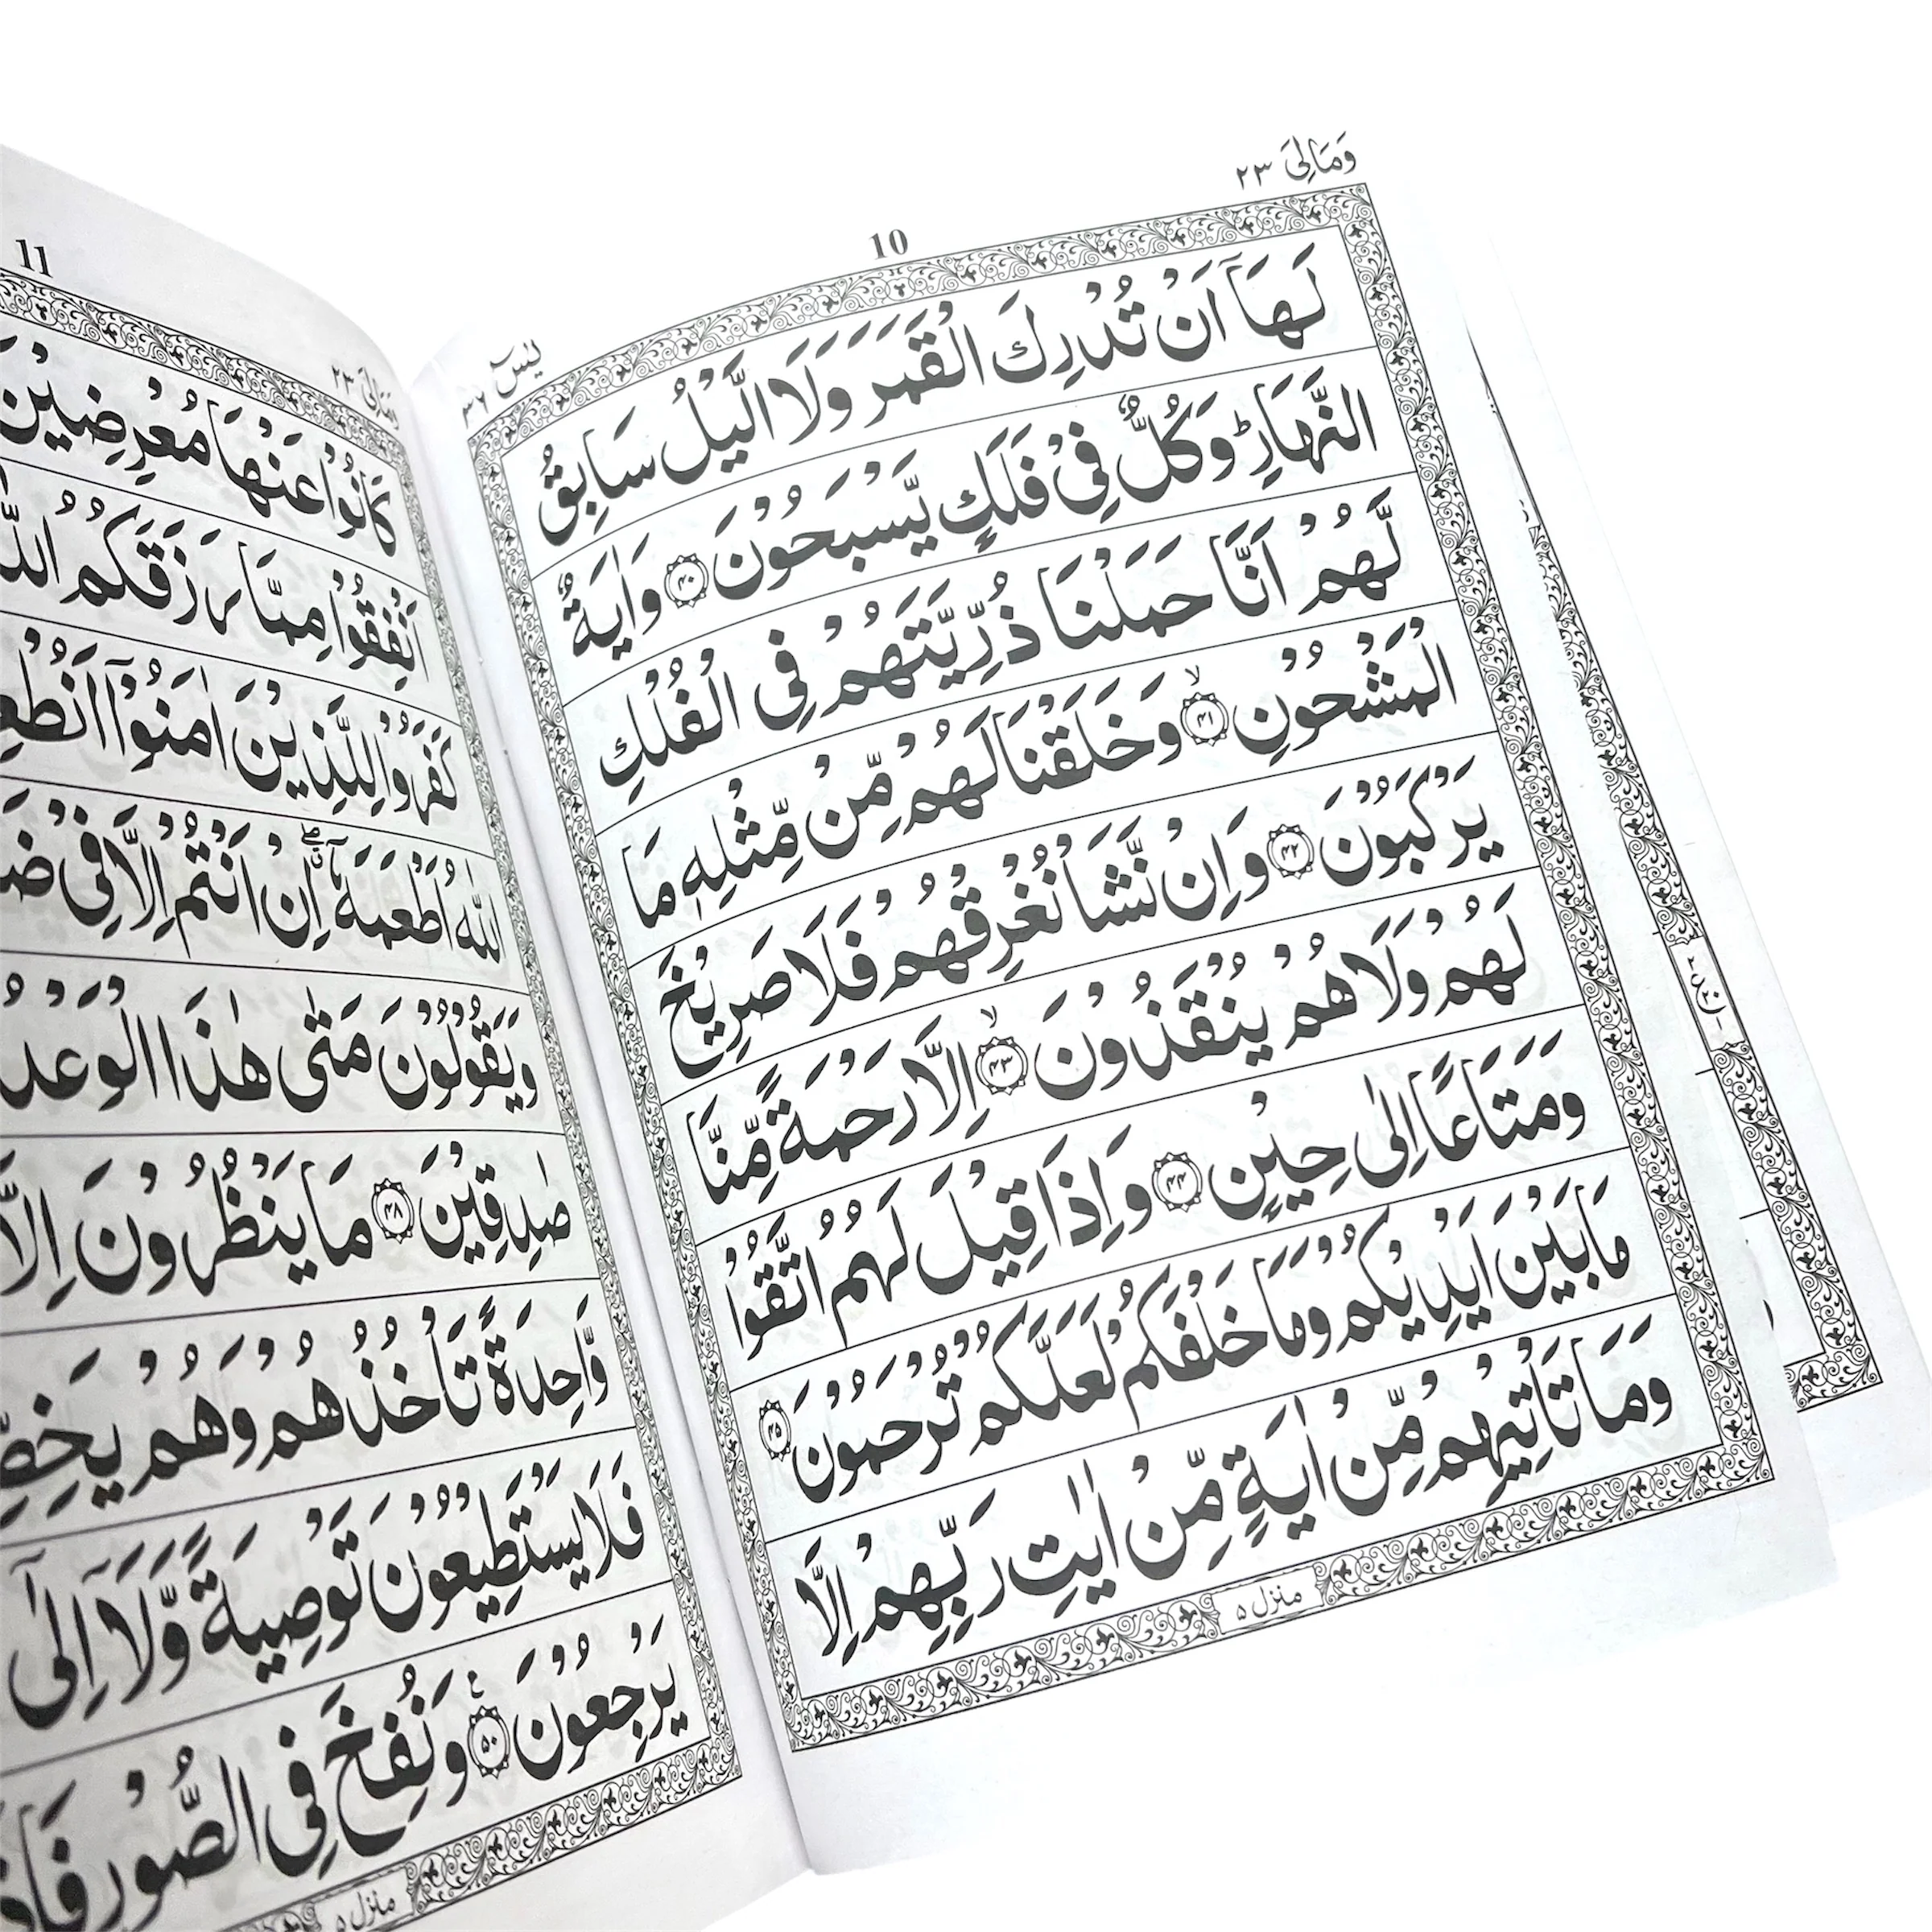 وَمَالِیَ ٢٣
10
یٰسٓ ٣٦
لَهَاۤ اَنْ تُدْرِكَ الْقَمَرَ وَلَا الَّيْلُ سَابِقُ
النَّهَارِؕ وَكُلٌّ فِیْ فَلَكٍ يَّسْبَحُوْنَ ۝٤٠ وَاٰيَةٌ
لَّهُمْ اَنَّا حَمَلْنَا ذُرِّيَّتَهُمْ فِی الْفُلْكِ
الْمَشْحُوْنِ ۝٤١ۙ وَخَلَقْنَا لَهُمْ مِّنْ مِّثْلِهٖ مَا
يَرْكَبُوْنَ ۝٤٢ وَاِنْ نَّشَاْ نُغْرِقْهُمْ فَلَا صَرِيْخَ
لَهُمْ وَلَا هُمْ يُنْقَذُوْنَ ۝٤٣ۙ اِلَّا رَحْمَةً مِّنَّا
وَمَتَاعًا اِلٰی حِيْنٍ ۝٤٤ وَاِذَا قِيْلَ لَهُمُ اتَّقُوْا
مَا بَيْنَ اَيْدِيْكُمْ وَمَا خَلْفَكُمْ لَعَلَّكُمْ تُرْحَمُوْنَ ۝٤٥
وَمَا تَاْتِيْهِمْ مِّنْ اٰيَةٍ مِّنْ اٰيٰتِ رَبِّهِمْ اِلَّا
منزل ٥
11
وَمَالِیَ ٢٣
كَانُوْا عَنْهَا مُعْرِضِيْنَ
اَنْفِقُوْا مِمَّا رَزَقَكُمُ
كَفَرُوْا لِلَّذِيْنَ اٰمَنُوْۤا
اللّٰهُ اَطْعَمَهٗۤ ۖ اِنْ اَنْتُمْ اِلَّا فِیْ
وَيَقُوْلُوْنَ مَتٰی هٰذَا الْوَعْدُ
صٰدِقِيْنَ ۝٤٨ مَا يَنْظُرُوْنَ اِلَّا
وَّاحِدَةً تَاْخُذُهُمْ وَهُمْ
فَلَا يَسْتَطِيْعُوْنَ تَوْصِيَةً وَّلَاۤ اِلٰۤی
يَرْجِعُوْنَ ۝٥٠ع وَنُفِخَ فِی الصُّوْرِ
منزل ٥